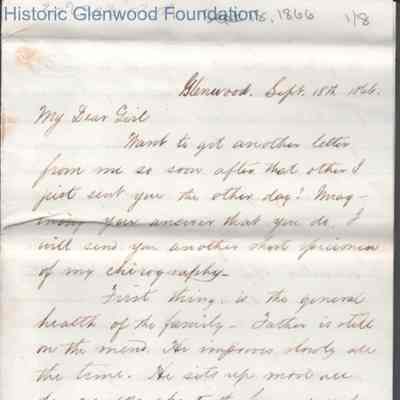 Historic Glenwood Foundation
Sept 18, 1866 1/8
Glenwood. Sept. 18th 1866.
My Dear Girl
Want to get another letter
from me so soon after that other I
just sent you the other day? Imag-
ining your answer that you do, I
will send you another short specimen
of my chirography-
First thing is the general
health of the family- Father is still
on the mend. He improves slowly all
the time. He sits up most all